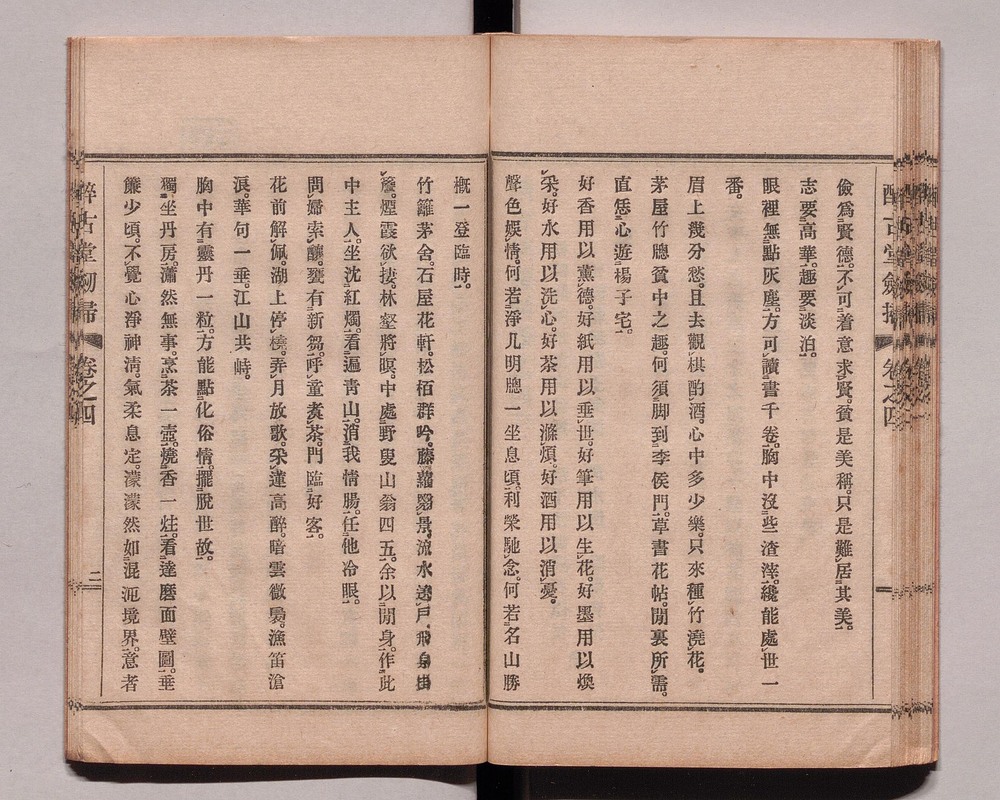 儉爲賢德。不可着意求賢。貧是美稱。只是難居其美。
志要高華。趣要淡泊。
眼裡無點灰塵。方可讀書千卷。胸中沒些渣滓。纔能處世一
番。
眉上幾分愁。且去觀棋酌酒。心中多少樂。只來種竹澆花。
茅屋竹牕貧中之趣。何須脚到李侯門。草書花帖。閒裏所需。
直恁心遊楊子宅。
好香用以熏德。好紙用以垂世。好筆用以生花。好墨用以煥
采。好水用以洗心。好茶用以滌煩。好酒用以消憂。
聲色娛情。何若淨几明牕一坐息頃。利榮馳念。何若名山勝
概一登臨時。
竹籬茅舍。石屋花軒。松栢群吟。藤蘿翳景。流水遶戶。飛泉掛
簷。煙霞欲棲。林壑將暝。中處野叟山翁四五。余以閒身。作此
中主人。坐沈紅燭。看遍青山。消我情腸。任他冷眼。
問婦索釀。甕有新芻。呼童煑茶。門臨好客。
花前解佩。湖上停橈。弄月放歌。采蓮高醉。暗雲微裊。漁笛滄
浪。華句一垂。江山共峙。
胸中有靈丹一粒。方能點化俗情。擺脫世故。
獨坐丹房。瀟然無事。烹茶一壺。燒香一炷。看達磨面壁圖。垂
簾少頃。不覺心淨神清。氣柔息定。濛濛然如混沌境界。意者
醉古堂劒掃 卷之四 二